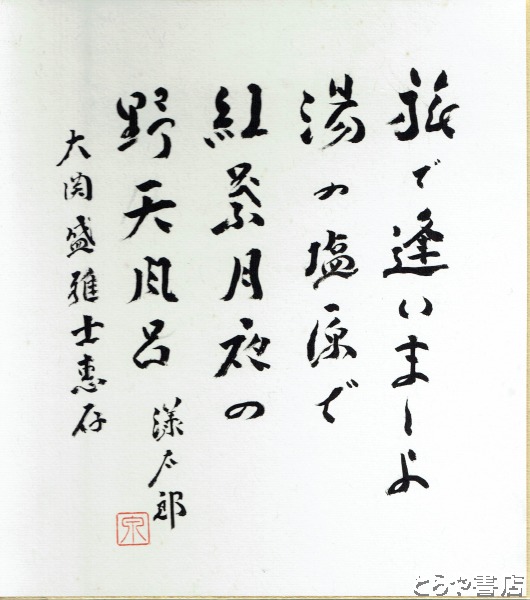 旅で逢いましょ
湯の塩原で
紅葉月夜の
野天風呂
漾太郎
大関盛雅士恵存
とらや書店